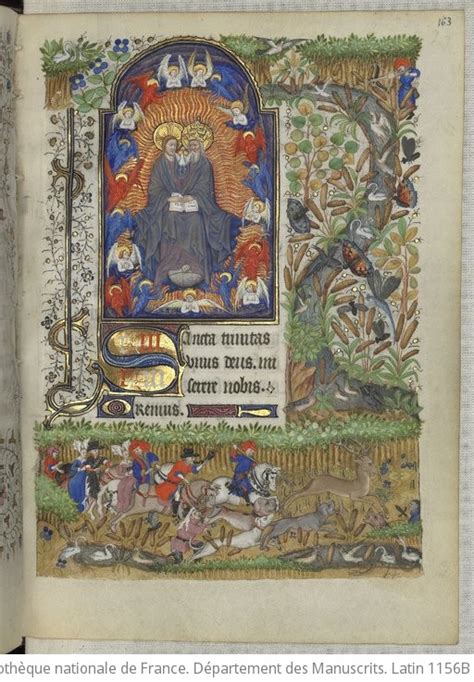 163
Sancta trinitas
vnus deus. mi
serere nobis.
Oremus.
othèque nationale de France. Département des Manuscrits. Latin 1156B